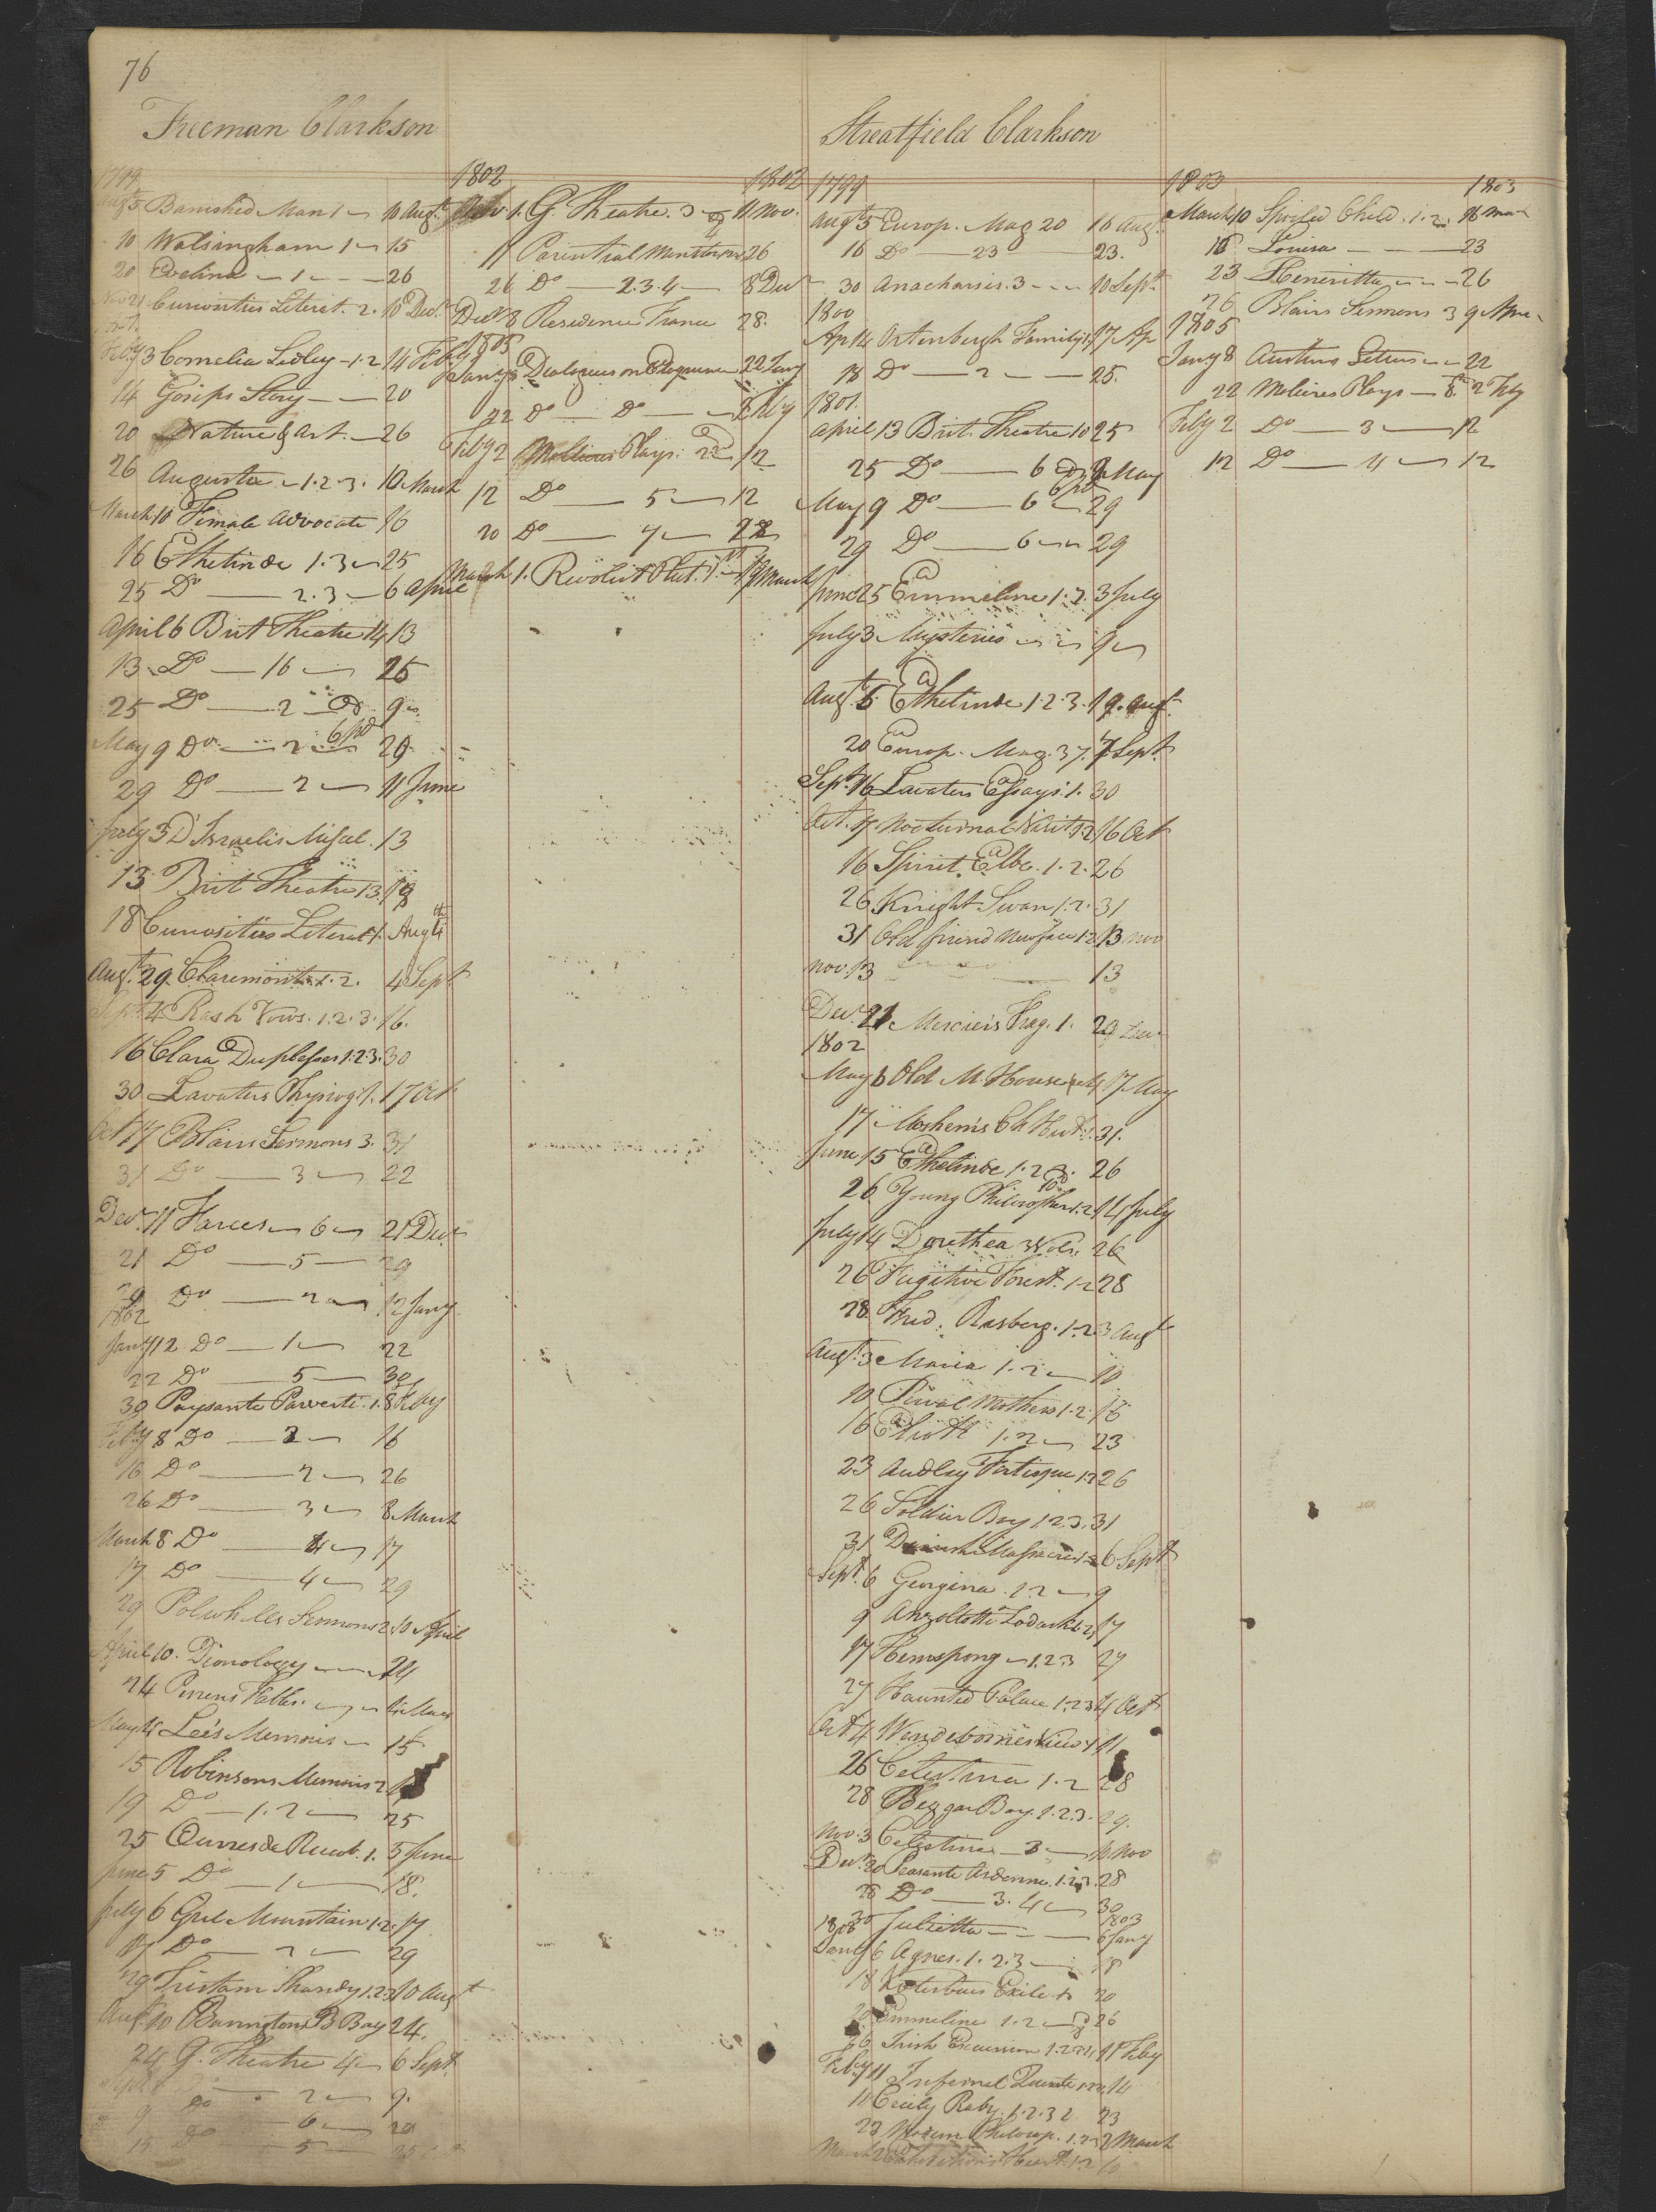 76
Freeman Clarkson
1799
Augt 5 Banished Man 1 10 Augt
10 Walsingham 1 15
20 Evelina 1 26
Nov 21 Curiosities Literat. 2. 10 Decr
Feby 3 Cornelia Sedley 1.2 14 Feby
14 Gosips Story 20
20 Nature & Art. 26
26 Augusta 1.2.3. 10 March
March 10 Female Advocate 16
16 Ethelinde 1.3 25
25 Do 2.3 6 April
April 6 Brit Theatre 14 13
13 Do 16 25
25 Do 2 9
May 9 Do 2 6 pd 29
29 Do 2 11 June
July 3 D'Israelis Miscel. 13
13 Brit Theatre 13 18
18 Curiosities Literat 1. Augt 4th
Augt 29 Claremont 1.2. 4 Sept
Sept 4 Rash Vows. 1.2.3. 16.
16 Clara Duplessis 1.2.3. 30
30 Lavaters Physiog. 1. 17 Oct
Oct 17 Blairs Sermons 3. 31
31 Do 3 22
Decr 11 Farces 6 21 Decr
21 Do 5 29
29 Do 2 12 Jany
1802
Jany 12 Do 1 22
22 Do 5 30
30 Paysante Parvenue. 1. 8 Feby
Feby 8 Do 2 16
16 Do 2 26
26 Do 3 8 March
March 8 Do 4 17
17 Do 4 29
29 Polwheles Sermons 2 10 April
April 10. Dionology 24
24 Perrins Fables 4 May
May 4 Lee's Memoirs 15
15 Robinsons Memoirs 2
19 Do 1.2 25
25 Ouvres de 1. 5 June
June 5 Do 1 18.
July 6 Grel Mountain 1.2. 17
17 Do 2 29
29 Tristam Shandy 1.2.3 10 Augt
Augt 10 Barringtons B Bay 24.
24 G. Theatre 4 6 Sept
Sept 6 Do 2 9.
9 Do 6 20
15 Do 5
1802 1802
Nov 1. G. Theatre. 3 11 Nov.
11 Parential 26
26 Do 2.3.4 8 Decr
Decr 8 Residence France 28.
1805
Jany 8 Dialogues on Eloquence 22 Jany
22 Do Do 2 Feby
Feby 2 Molieres Plays. 2 12
12 Do 5 12
20 Do 7 22
March 1. Revolut Plut. 1. 19 March
Streatfield Clarkson
1799
Augt 5 Europ. Mag 20 16 Augt
16 Do 23 23.
30 Anacharsis. 3 10 Sept.
1800
Ap 14 Artenburgh Family 1. 17 Ap
18 Do 2 25.
1801.
April 13 Brit. Theatre 10 25
25 Do 6 9 May
May 9 Do 6 6 pd 29
29 Do 6 29
June 25 Emmeline 1.2. 3 July
July 3 Mysterious 9
Augt 5 Ethelinde 1.2.3. 19. Augt
20 Europ. Mag. 37. 7 Sept
Sept 16 Lavaters Essays 1. 30
Oct. 7 Nocturnal Visit 1.2 16 Oct
16 Spirit Elbe. 1.2. 26
26 Knight Swan 1.2. 31
31 Old friend New face 1.2 13 Nov
Nov 13 13
Decr 21 Merciers Frag. 1. 29 Decr
1802
May 6 Old M House 17 May
17 Moshems Ch Hist. 1. 31.
June 15 Ethelinde 1.2.3. 26
26 Young Philosopher 1.2 14 July
July 14 Dorethea 3 Vols. 26
26 Fugitive Forest. 1.2 28
28 Fred. Rasberg. 1.2. 3 Augt
Augt 3 Maria 1.2 10
10 Rival Mothers 1.2. 16
16 Eliott 1.2 23
23 Audley Fortesque 1.2 26
26 Soldier Boy 1.2.3. 31
31 Danish Massacre 1.2 6 Sept
Sept. 6 Georgina 1.2 9
9 Anzoletta Zadoski 1.2 17
17 Hermsprong 1.2.3 27
27 Haunted Palace 1.2.3 4 Oct
Oct 4 Wendebornes View 1 11
26 Celestina 1.2 28
28 Beggar Boy. 1.2.3. 29.
Nov. 3 Celestina 3 16 Nov
Decr 20 Peasante Ardenne. 1.2.3. 28
28 Do 3.4 30
30 Julietta 1803 6 Jany
1803
Jany 6 Agnes. 1.2.3 18
18 Kotzebues Exile. 1. 20
20 Emmeline 1.2 26
26 Irish Excursion 1.2.3.4 11 Feby
Feby 11 Infernal Quixote 1.2.3. 14
11 Cecily Raby. 1.2.3 23
23 Modern Philosop. 1.2.3 2 March
March 2
1803 1803
March 10 Spoiled Child. 1.2. 16 Mar
16 Louisa 23
23 Heneritta 26
26 Blairs Sermons 3 9 Apr
1805
Jany 8 Austins Letters 22
22 Molieres Plays 8. 2 Feby
Feby 2 Do 3 12
12 Do 4 12